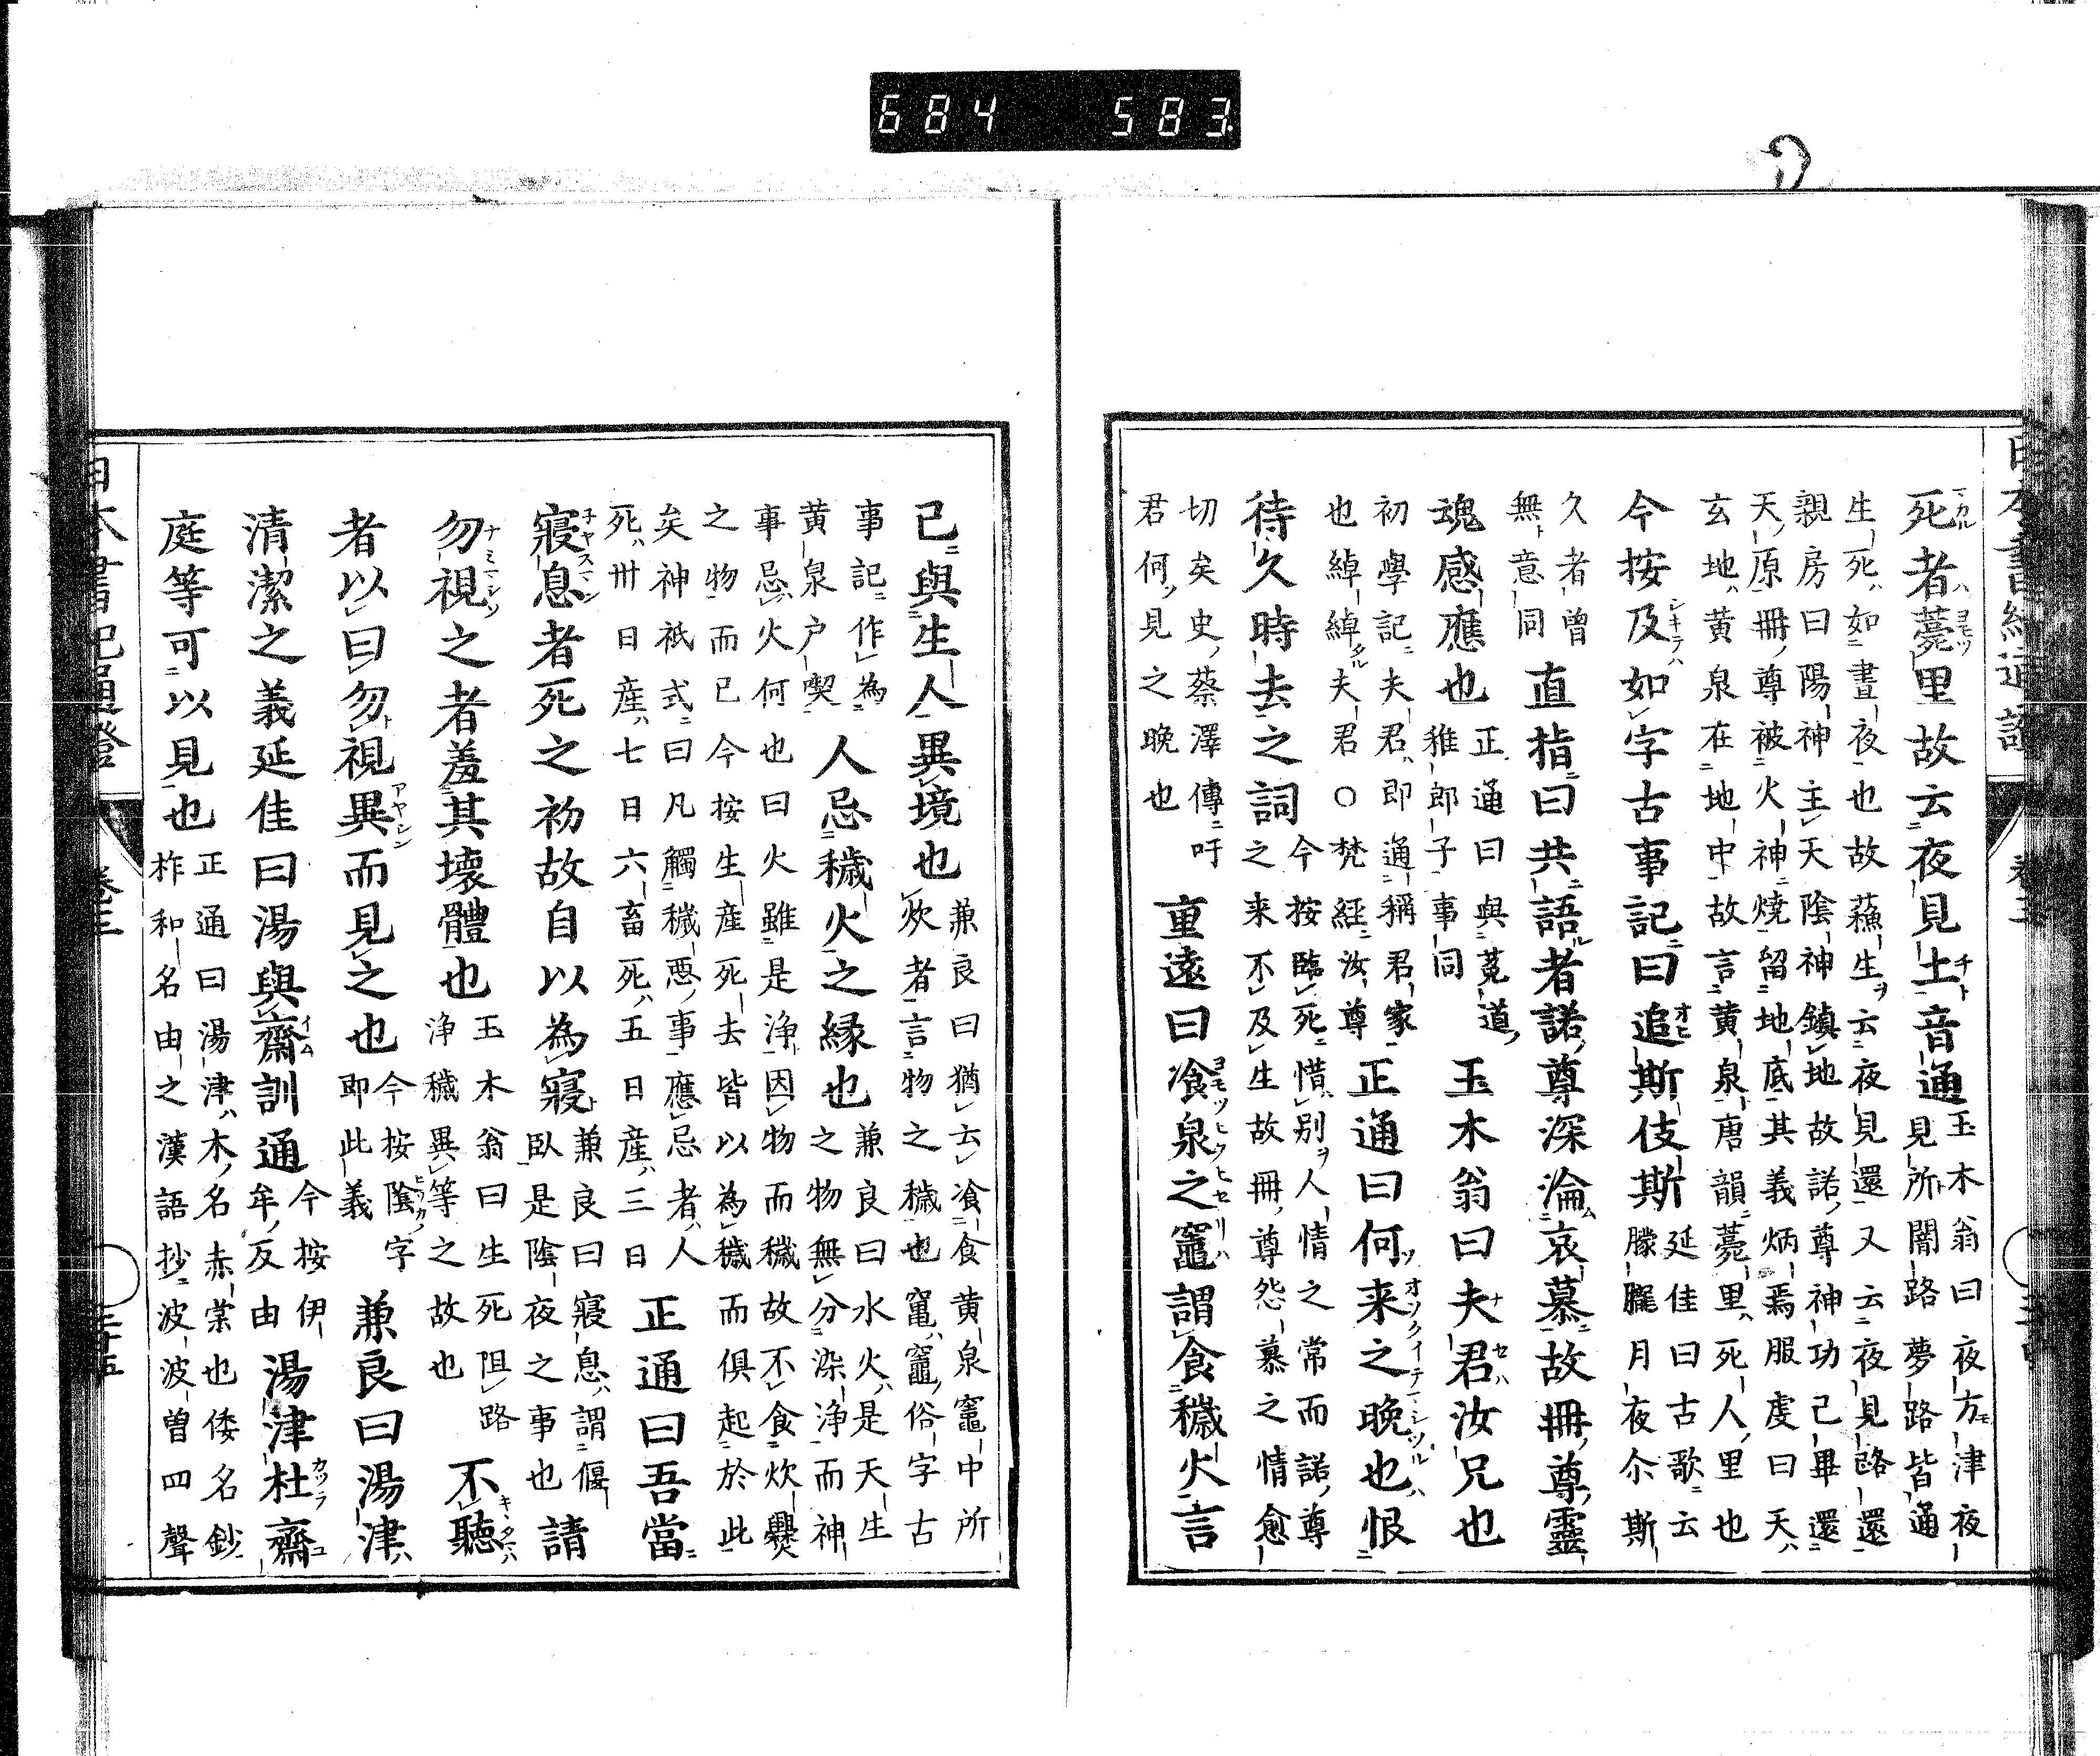 684 583.
死者薨里故云夜見土音通
玉木翁曰夜方津夜
見所闇路夢路皆通
生死如晝夜也故蘓生云夜見還又云夜見路還
親房曰陽神主天陰神鎮地故諾尊神功已畢還
天原冊尊被火神燒留地底其義炳焉服虔曰天
玄地黄泉在地中故言黄泉唐韻薨里死人里也
今按及如字古事記曰追斯伎斯
延佳曰古歌云
朦朧月夜尒斯
久者曽
無意同
直指曰共語者諾尊深淪哀慕故冊尊靈
魂感應也
正通曰與菟道
稚郎子事同
玉木翁曰夫君汝兄也
初學記夫君即通稱君家
也綽綽夫君○梵經汝尊
正通曰何来之晩也恨
待久時去之詞
今按臨死惜別人情之常而諾尊
之来不及生故冊尊怨慕之情愈
切矣史蔡澤傳吁
君何見之晩也
重遠曰飡泉之竈謂食穢火言
己與生人異境也
兼良曰猶云飡食黄泉竈中所
炊者言物之穢也竃竈俗字古
事記作為
黄泉户喫
人忌穢火之縁也
兼良曰水火是天生
之物無分染浄而神
事忌火何也曰火雖是浄因物而穢故不食炊爨
之物而已今按生産死去皆以為穢而俱起於此
矣神祇式曰凡觸穢悪事應忌者人
死卅日産七日六畜死五日産三日
正通曰吾當
寢息者死之初故自以為寢
兼良曰寢息謂偃
臥是陰夜之事也
請
勿視之者羞其壊體也
玉木翁曰生死阻路
浄穢異等之故也
不聽
者以曰勿視異而見之也
今按陰字
即此義
兼良曰湯津
清潔之義延佳曰湯與齋訓通
今按伊
牟反由
湯津杜齋
庭等可以見也
正通曰湯津木名赤棠也倭名鈔
柞和名由之漢語抄波波曽四聲
日本書紀通證
卷三
三十五